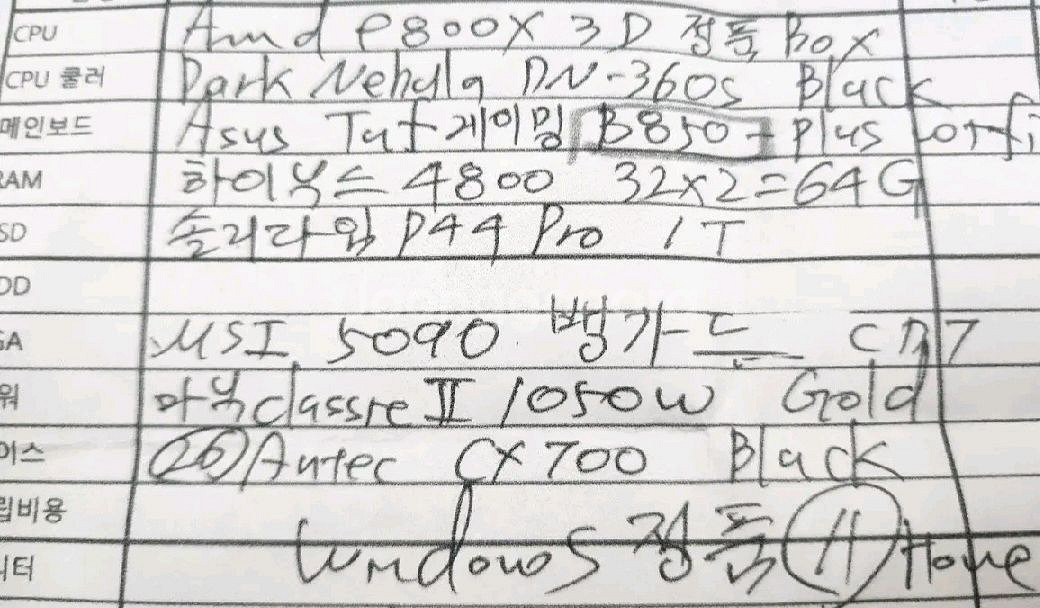 CPU Amd 9800X 3D 정품 Box
CPU 쿨러 Dark Nebula DN-360s Black
메인보드 Asus Tuf 게이밍 B850-Plus wifi
RAM 하이닉스 4800 32x2=64G
SD 솔리다임 P44 Pro 1T
DD
GA MSI 5090 뱅가드
워 마닉 classic II 1050W Gold
이스 (26) Antec CX700 Black
립비용
Windows 정품 (11) Home
니터